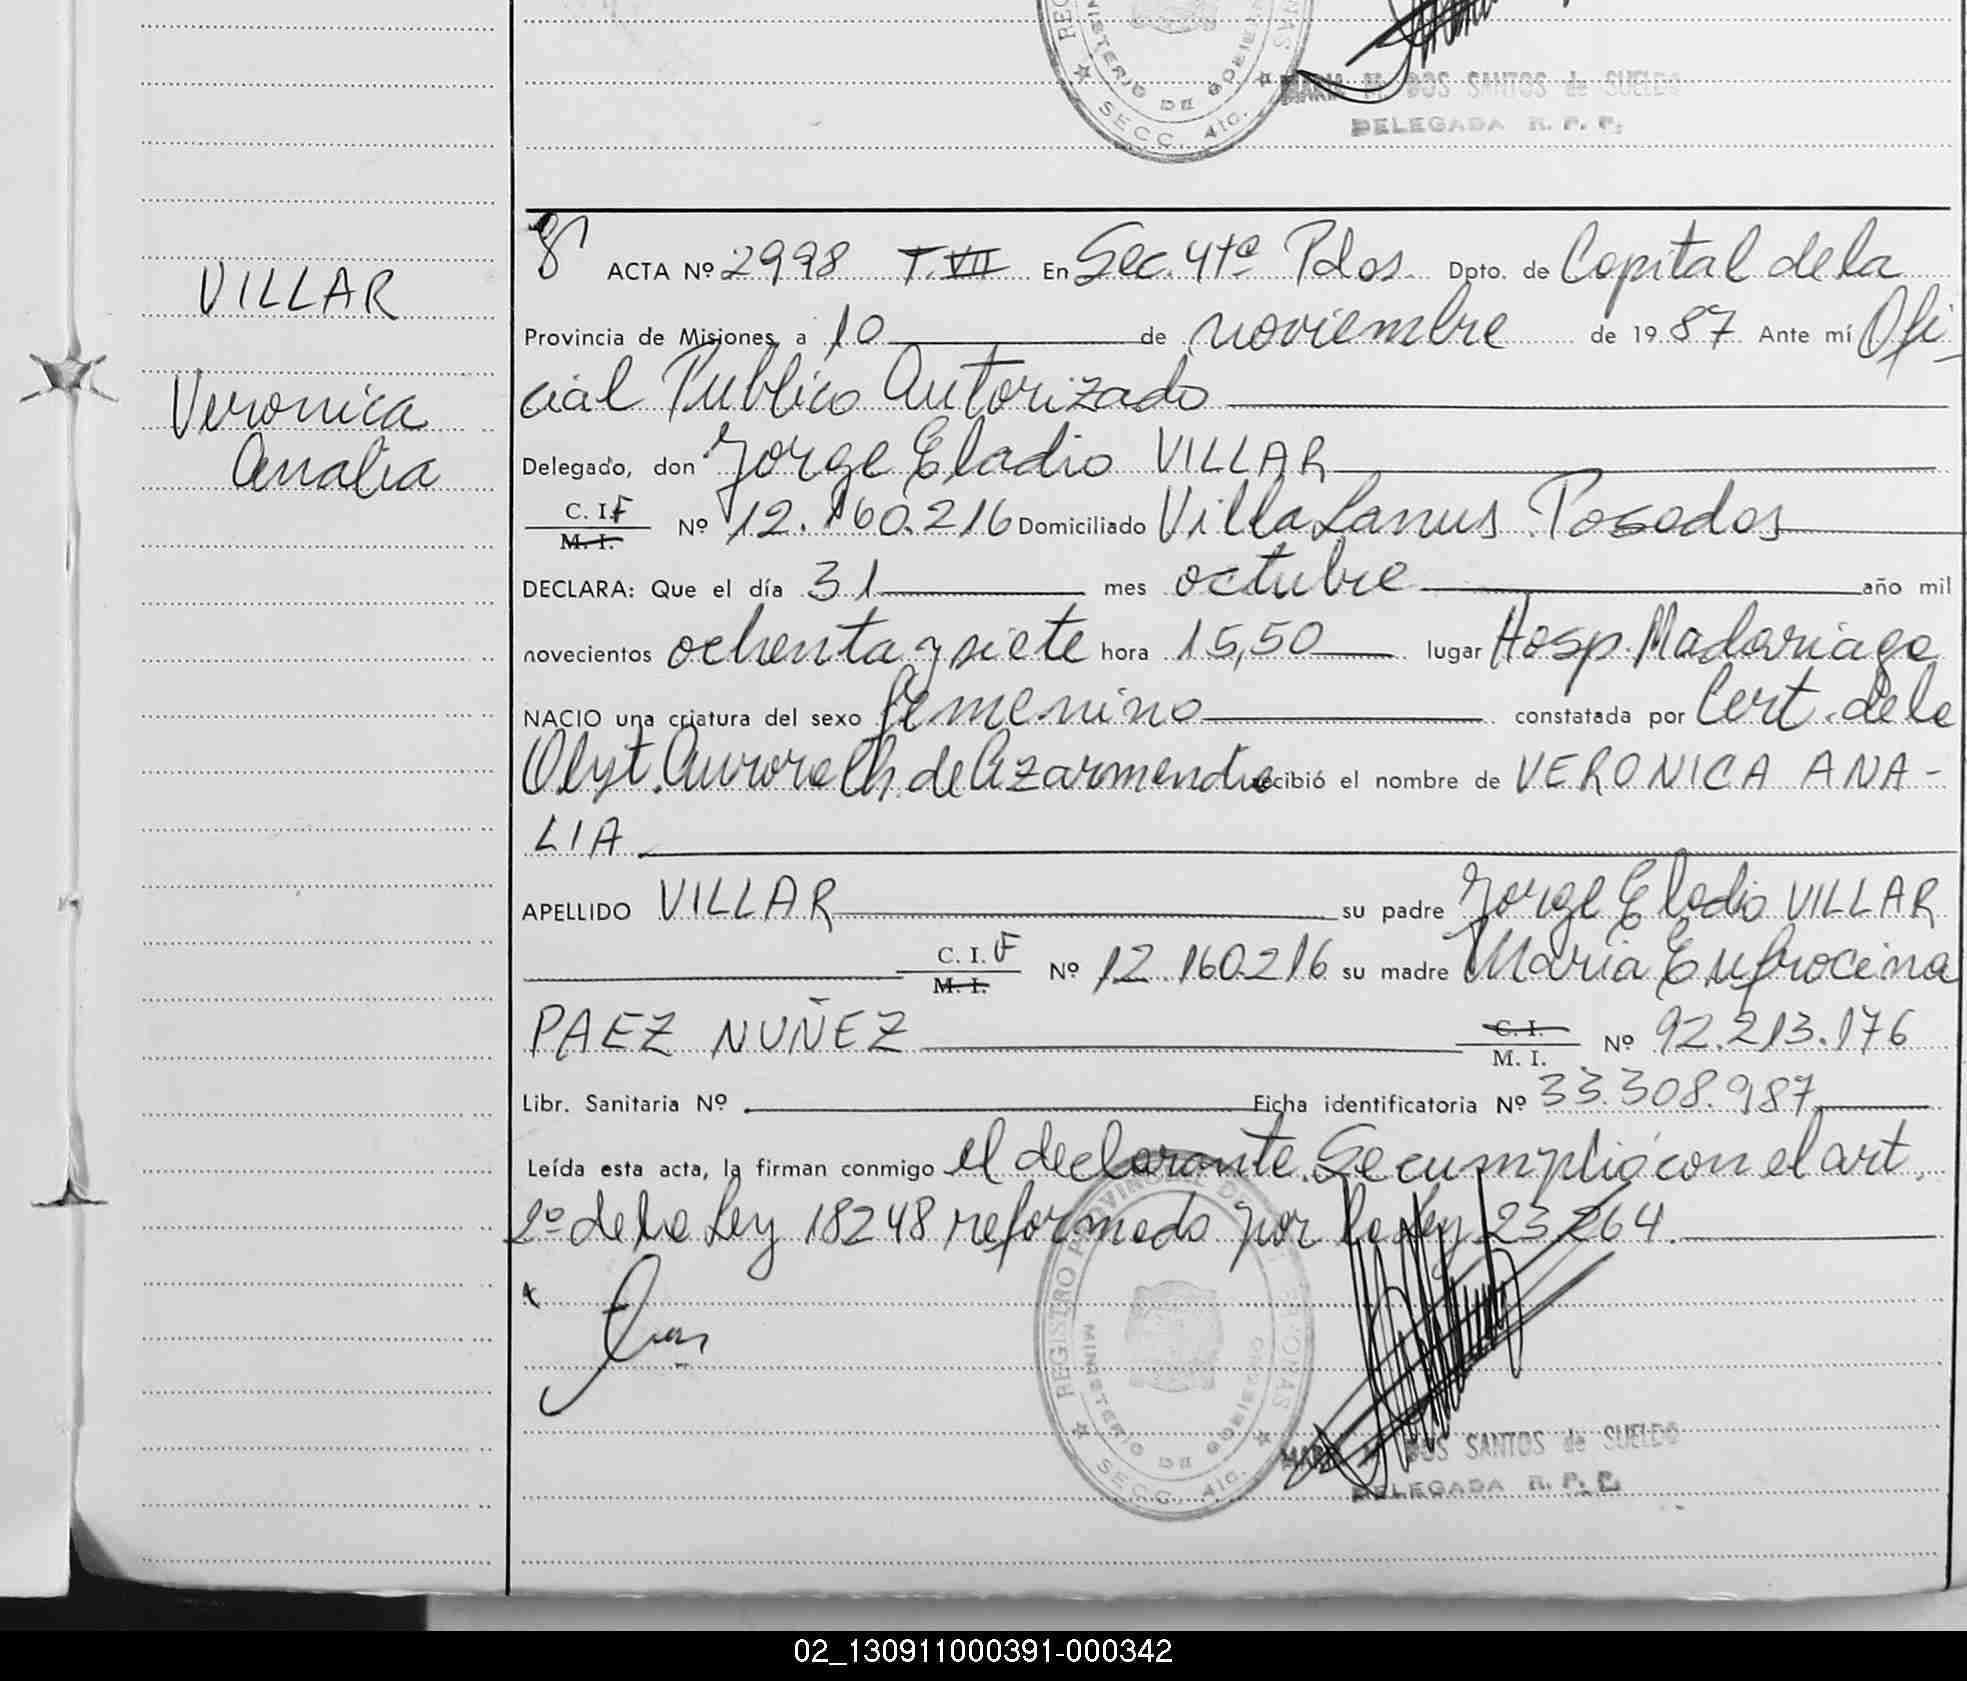 MARIA M. DOS SANTOS de SUELDO
DELEGADA R. P. P.
SECC. 4ta.
MINISTERIO DE GOBIERNO
VILLAR
Veronica
Analia
8 ACTA Nº 2998 T. VII En Sec. 4ta Pdas. Dpto. de Capital de la
Provincia de Misiones, a 10 de noviembre de 1987 Ante mí Ofi-
cial Publico Autorizado
Delegado, don Jorge Eladio VILLAR
C. I. F
M. I.
Nº 12.160.216 Domiciliado Villa Lanus Posadas
DECLARA: Que el día 31 mes octubre año mil
novecientos ochenta y siete hora 15,50 lugar Hosp. Madariaga
NACIO una criatura del sexo femenino constatada por Cert. de la
Obst. Aurora Ch. de Azarmendia recibió el nombre de VERONICA ANA-
LIA
APELLIDO VILLAR su padre Jorge Eladio VILLAR
C. I. F
M. I.
Nº 12.160.216 su madre Maria Eufrocina
PAEZ NUÑEZ
C. I.
M. I.
Nº 92.213.176
Libr. Sanitaria Nº Ficha identificatoria Nº 33.308.987
Leída esta acta, la firman conmigo el declarante. Se cumplió con el art.
2º de la Ley 18248 reformado por la Ley 23264.
REGISTRO PROVINCIAL DE
MINISTERIO DE GOBIERNO
SECC. 4ta.
MARIA M. DOS SANTOS de SUELDO
DELEGADA R. P. P.
02_130911000391-000342